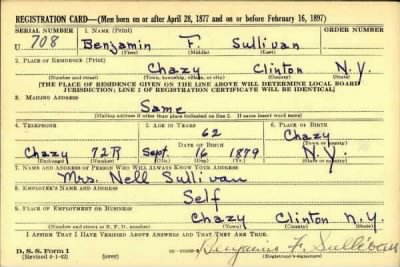 REGISTRATION CARD—(Men born on or after April 28, 1877 and on or before February 16, 1897)
SERIAL NUMBER 1. NAME (Print) ORDER NUMBER
U 708 Benjamin F. Sullivan
(First) (Middle) (Last)
2. PLACE OF RESIDENCE (Print)
Chazy Clinton N.Y.
(Number and street) (Town, township, village, or city) (County) (State)
[THE PLACE OF RESIDENCE GIVEN ON THE LINE ABOVE WILL DETERMINE LOCAL BOARD
JURISDICTION; LINE 2 OF REGISTRATION CERTIFICATE WILL BE IDENTICAL]
3. MAILING ADDRESS
Same
[Mailing address if other than place indicated on line 2. If same insert word same]
4. TELEPHONE 5. AGE IN YEARS 6. PLACE OF BIRTH
62 Chazy
DATE OF BIRTH (Town or county)
Chazy 72R Sept. 16 1879 N.Y.
(Exchange) (Number) (Mo.) (Day) (Yr.) (State or country)
7. NAME AND ADDRESS OF PERSON WHO WILL ALWAYS KNOW YOUR ADDRESS
Mrs. Nell Sullivan
8. EMPLOYER'S NAME AND ADDRESS
Self
9. PLACE OF EMPLOYMENT OR BUSINESS
Chazy Clinton N.Y.
(Number and street or R. F. D. number) (Town) (County) (State)
I AFFIRM THAT I HAVE VERIFIED ABOVE ANSWERS AND THAT THEY ARE TRUE.
D. S. S. Form 1
(Revised 4-1-42) (over) Benjamin F. Sullivan
(Registrant's signature)